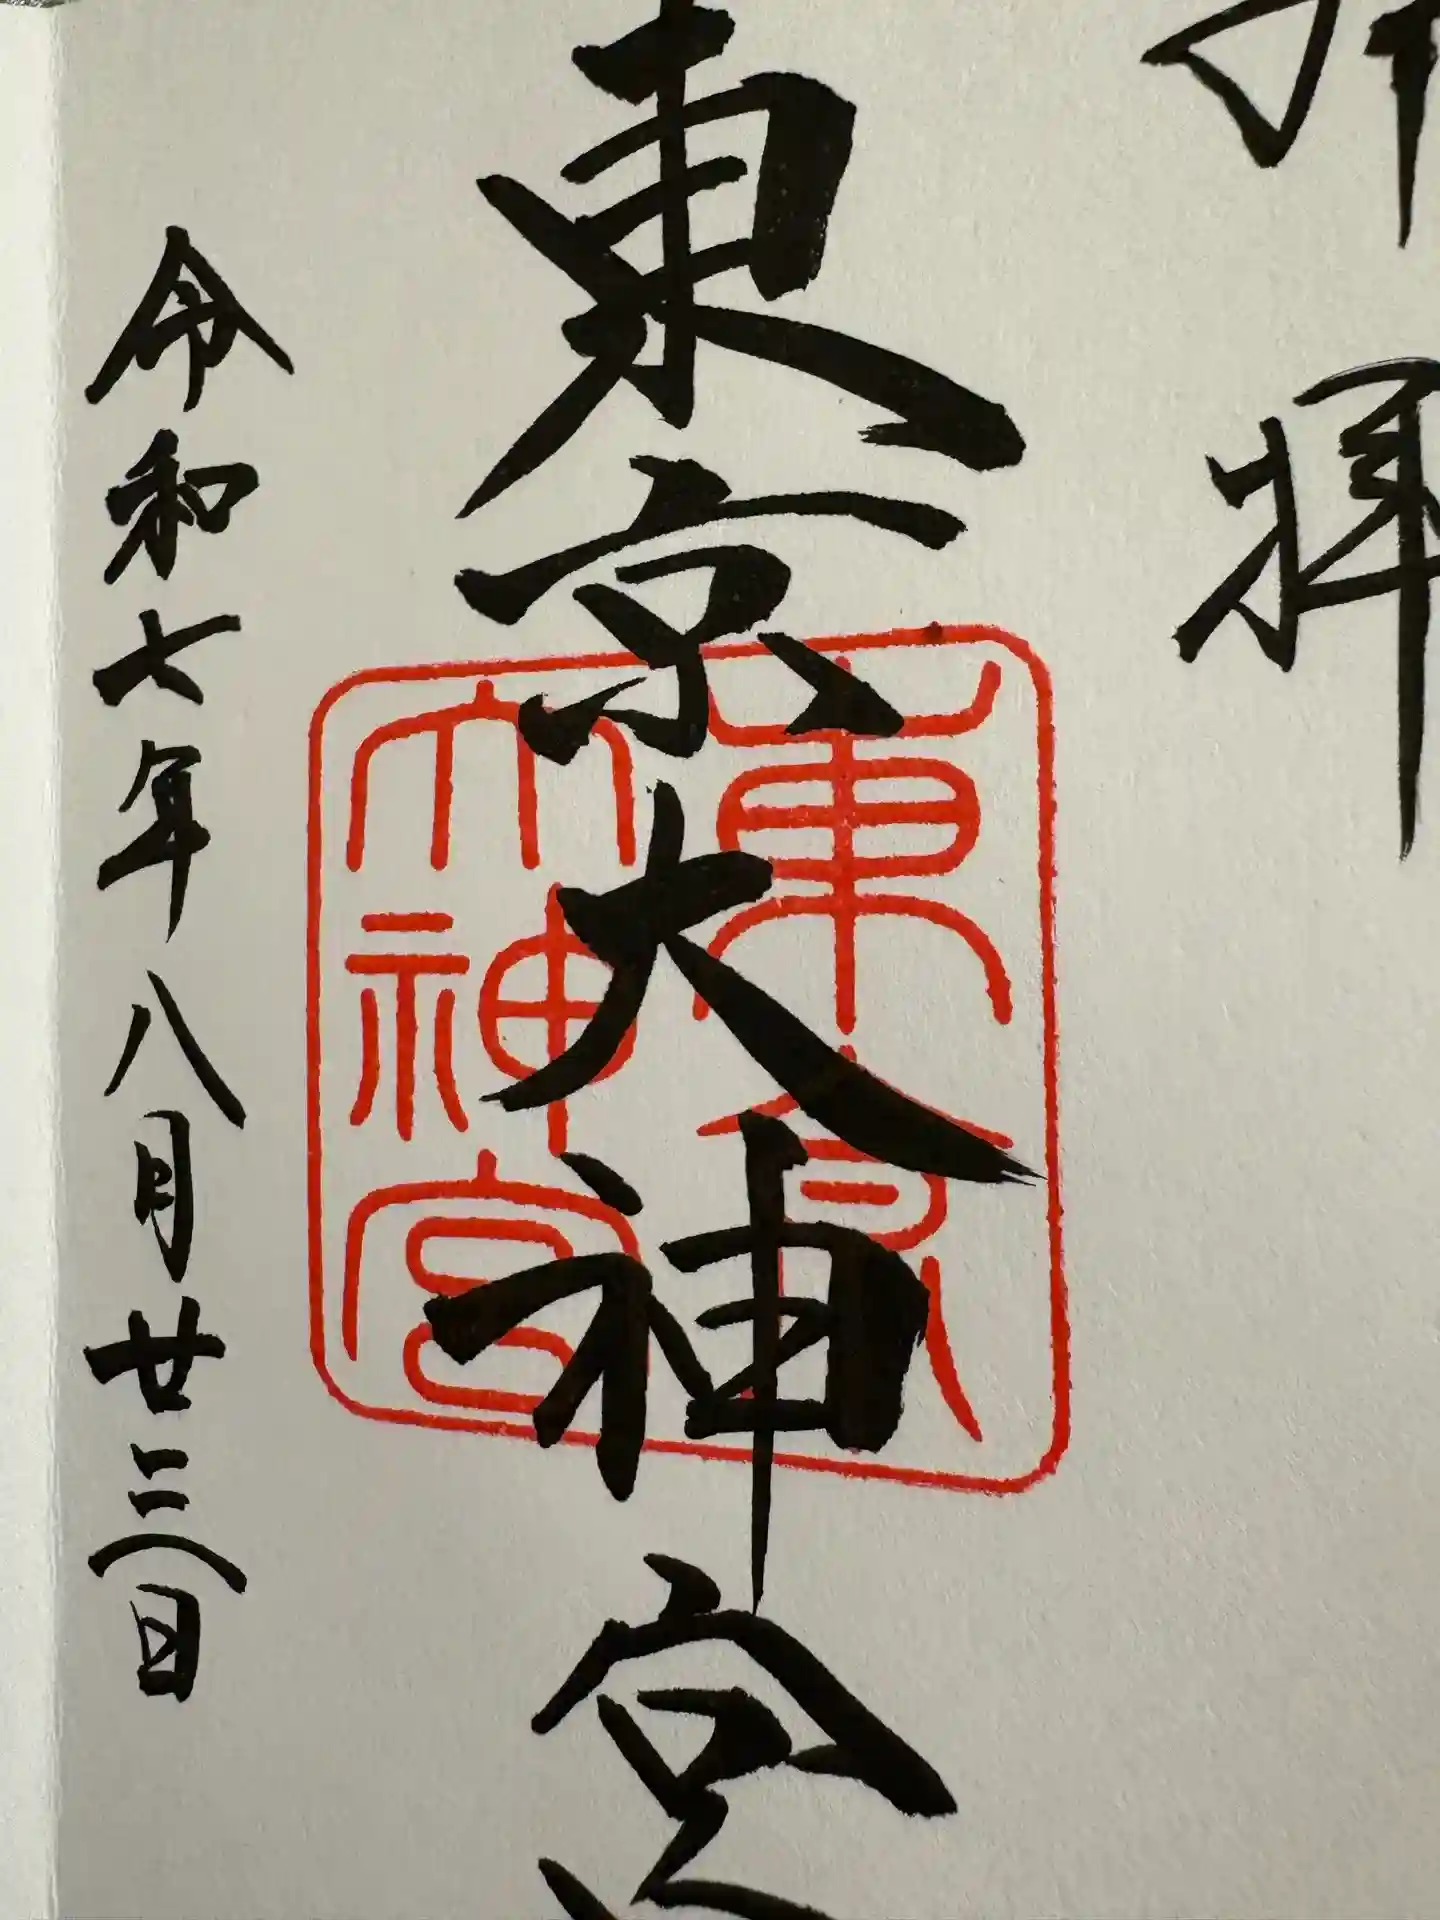 拝
東京大神宮
東京
大神宮
令和七年八月廿三日